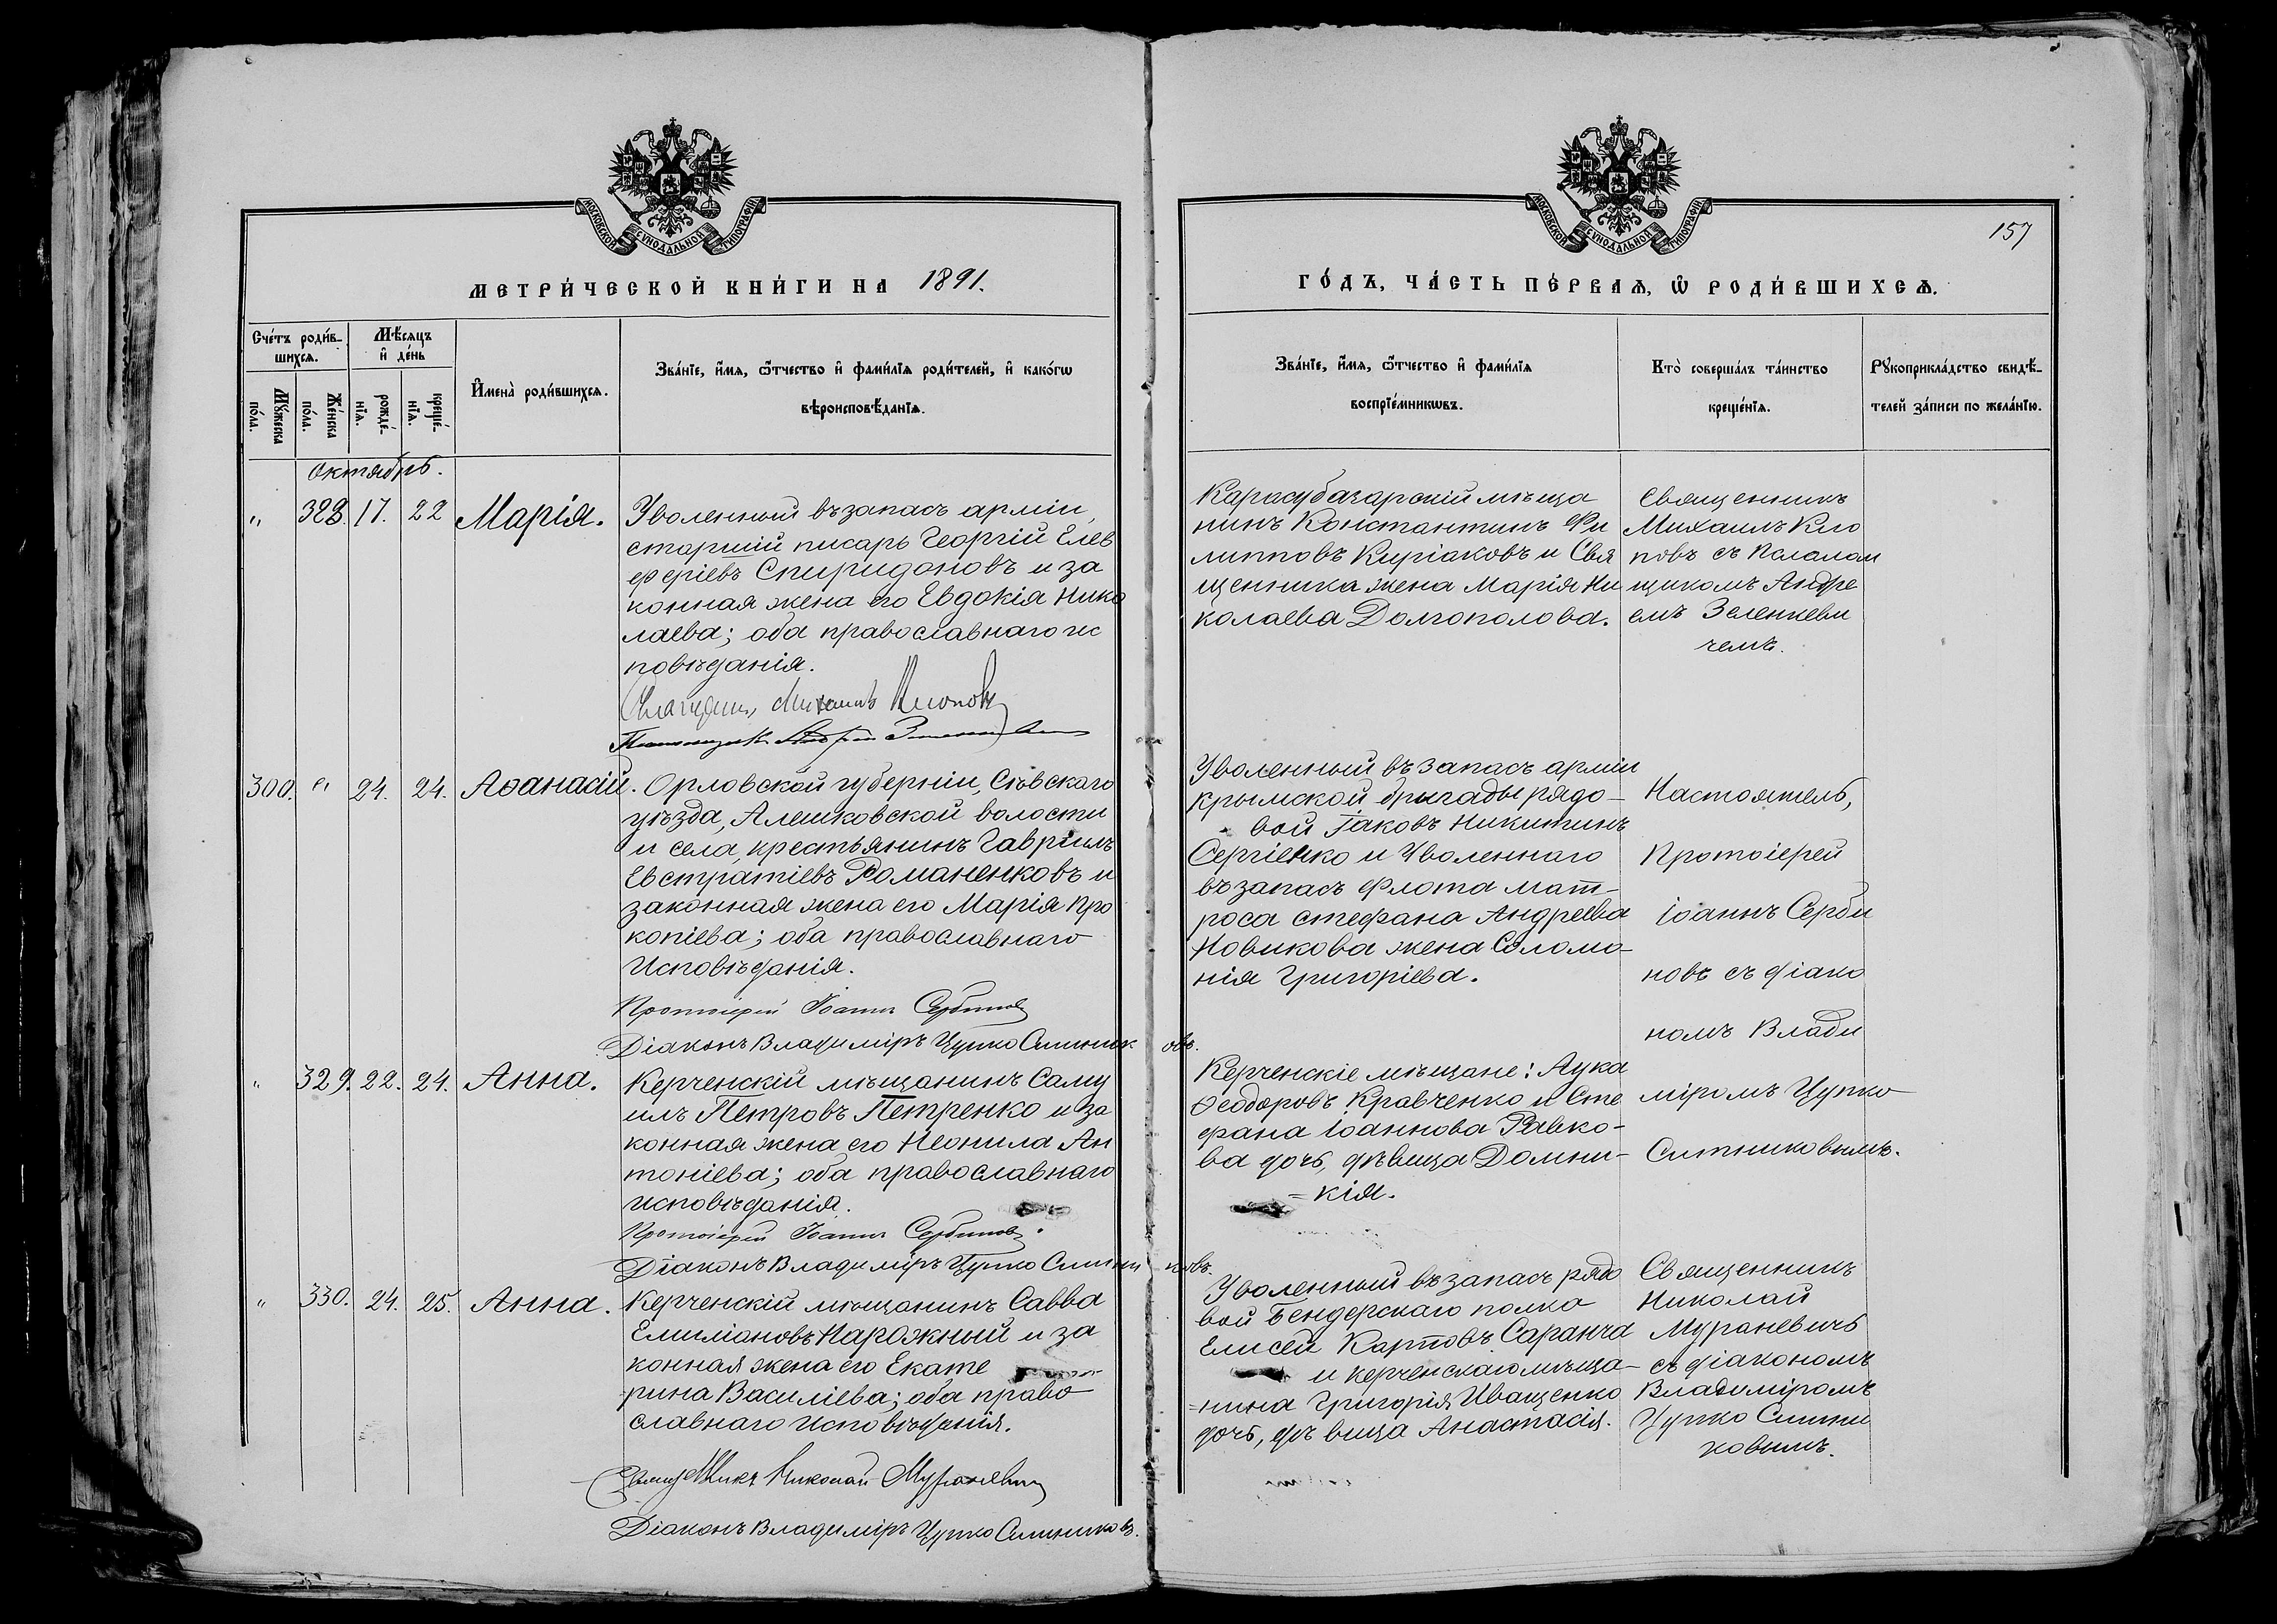 МОСКОВСКОЙ СѴНОДАЛЬНОЙ ТИПОГРАФІИ
МЕТРИ́ЧЕСКОЙ КНИ́ГИ НА 1891.
Сче́тъ роди́в-
шихсѧ.
Мѣ́сѧцъ
и҆ де́нь
Мꙋ́жеска
по́ла.
Же́нска
по́ла.
рожде́-
нїѧ.
креще́-
нїѧ.
И҆мена̀ роди́вшихсѧ.
Зва́нїе, и҆́мѧ, ѻ҆́тчество и҆ фами́лїѧ роди́телей, и҆ како́гѡ
вѣроисповѣ́данїѧ.
Октябрь.
„ 328. 17. 22 Марія.
Уволенный въ запасъ арміи,
старшій писарь Георгій Елев
феріевъ Спиридоновъ и за
конная жена его Евдокія Нико
лаева; оба православнаго ис
повѣданія.
Священникъ Михаилъ Клоповъ
Псаломщикъ Андрей
300. „ 24. 24. Аѳанасій.
Орловской губерніи, Сѣвскаго
уѣзда, Алешковской волости
и села, крестьянинъ Гавріилъ
Евстратіевъ Романенковъ и
законная жена его Марія Про
копіева; оба православнаго
Исповѣданія.
Протоіерей Іоаннъ Сербиновъ
Діаконъ Владиміръ Цупко Ситниковъ.
„ 329. 22. 24. Анна.
Керченскій мѣщанинъ Саму
илъ Петровъ Петренко и за
конная жена его Неонила Ан
тоніева; оба православнаго
исповѣданія.
Протоіерей Іоаннъ Сербиновъ.
Діаконъ Владиміръ Цупко Ситниковъ.
„ 330. 24. 25. Анна.
Керченскій мѣщанинъ Савва
Емиліановъ Нарожный и за
конная жена его Екате
рина Василіева; оба право
славнаго исповѣданія.
Священникъ Николай Мураневичъ
Діаконъ Владиміръ Цупко Ситниковъ.
МОСКОВСКОЙ СѴНОДАЛЬНОЙ ТИПОГРАФІИ
157
ГО́ДЪ, ЧА́СТЬ ПЕ́РВАѦ, Ѡ҆ РОДИ́ВШИХСѦ.
Зва́нїе, и҆́мѧ, ѻ҆́тчество и҆ фами́лїѧ
воспрїе́мникѡвъ.
Кто̀ соверша́лъ та́инство
креще́нїѧ.
Рꙋкоприкла́дство свидѣ́-
телей за́писи по жела́нїю.
Карасубазарскій мѣща
нинъ Константинъ Фи
липповъ Киріаковъ и Свя
щенника жена Марія Ни
колаева Долгополова.
Священникъ
Михаилъ Кло
повъ съ Псалом
щикомъ Андре
емъ Зеленкеви
чемъ.
Уволенный въ запасъ арміи
Крымской бригады рядо-
вой Іаковъ Никитинъ
Сергіенко и Уволеннаго
въ запасъ флота мат-
роса Стефана Андреева
Новикова жена Соломо-
нія Григоріева.
Настоятель,
Протоіерей
Іоаннъ Серби
новъ съ діако
номъ Влади
міромъ Цупко
Ситниковымъ.
Керченскіе мѣщане: Лука
Ѳеодоровъ Кравченко и Сте
фана Іоаннова Равко-
ва дочь, дѣвица Домни-
=кія.
Уволенный въ запасъ рядо
вой Бендерскаго полка
Елисей Карповъ Саранча
и керченскаго мѣща-
=нина Григорія Иващенко
дочь, дѣвица Анастасія.
Священникъ
Николай
Мураневичъ
съ діакономъ
Владиміромъ
Цупко Ситни
ковымъ.